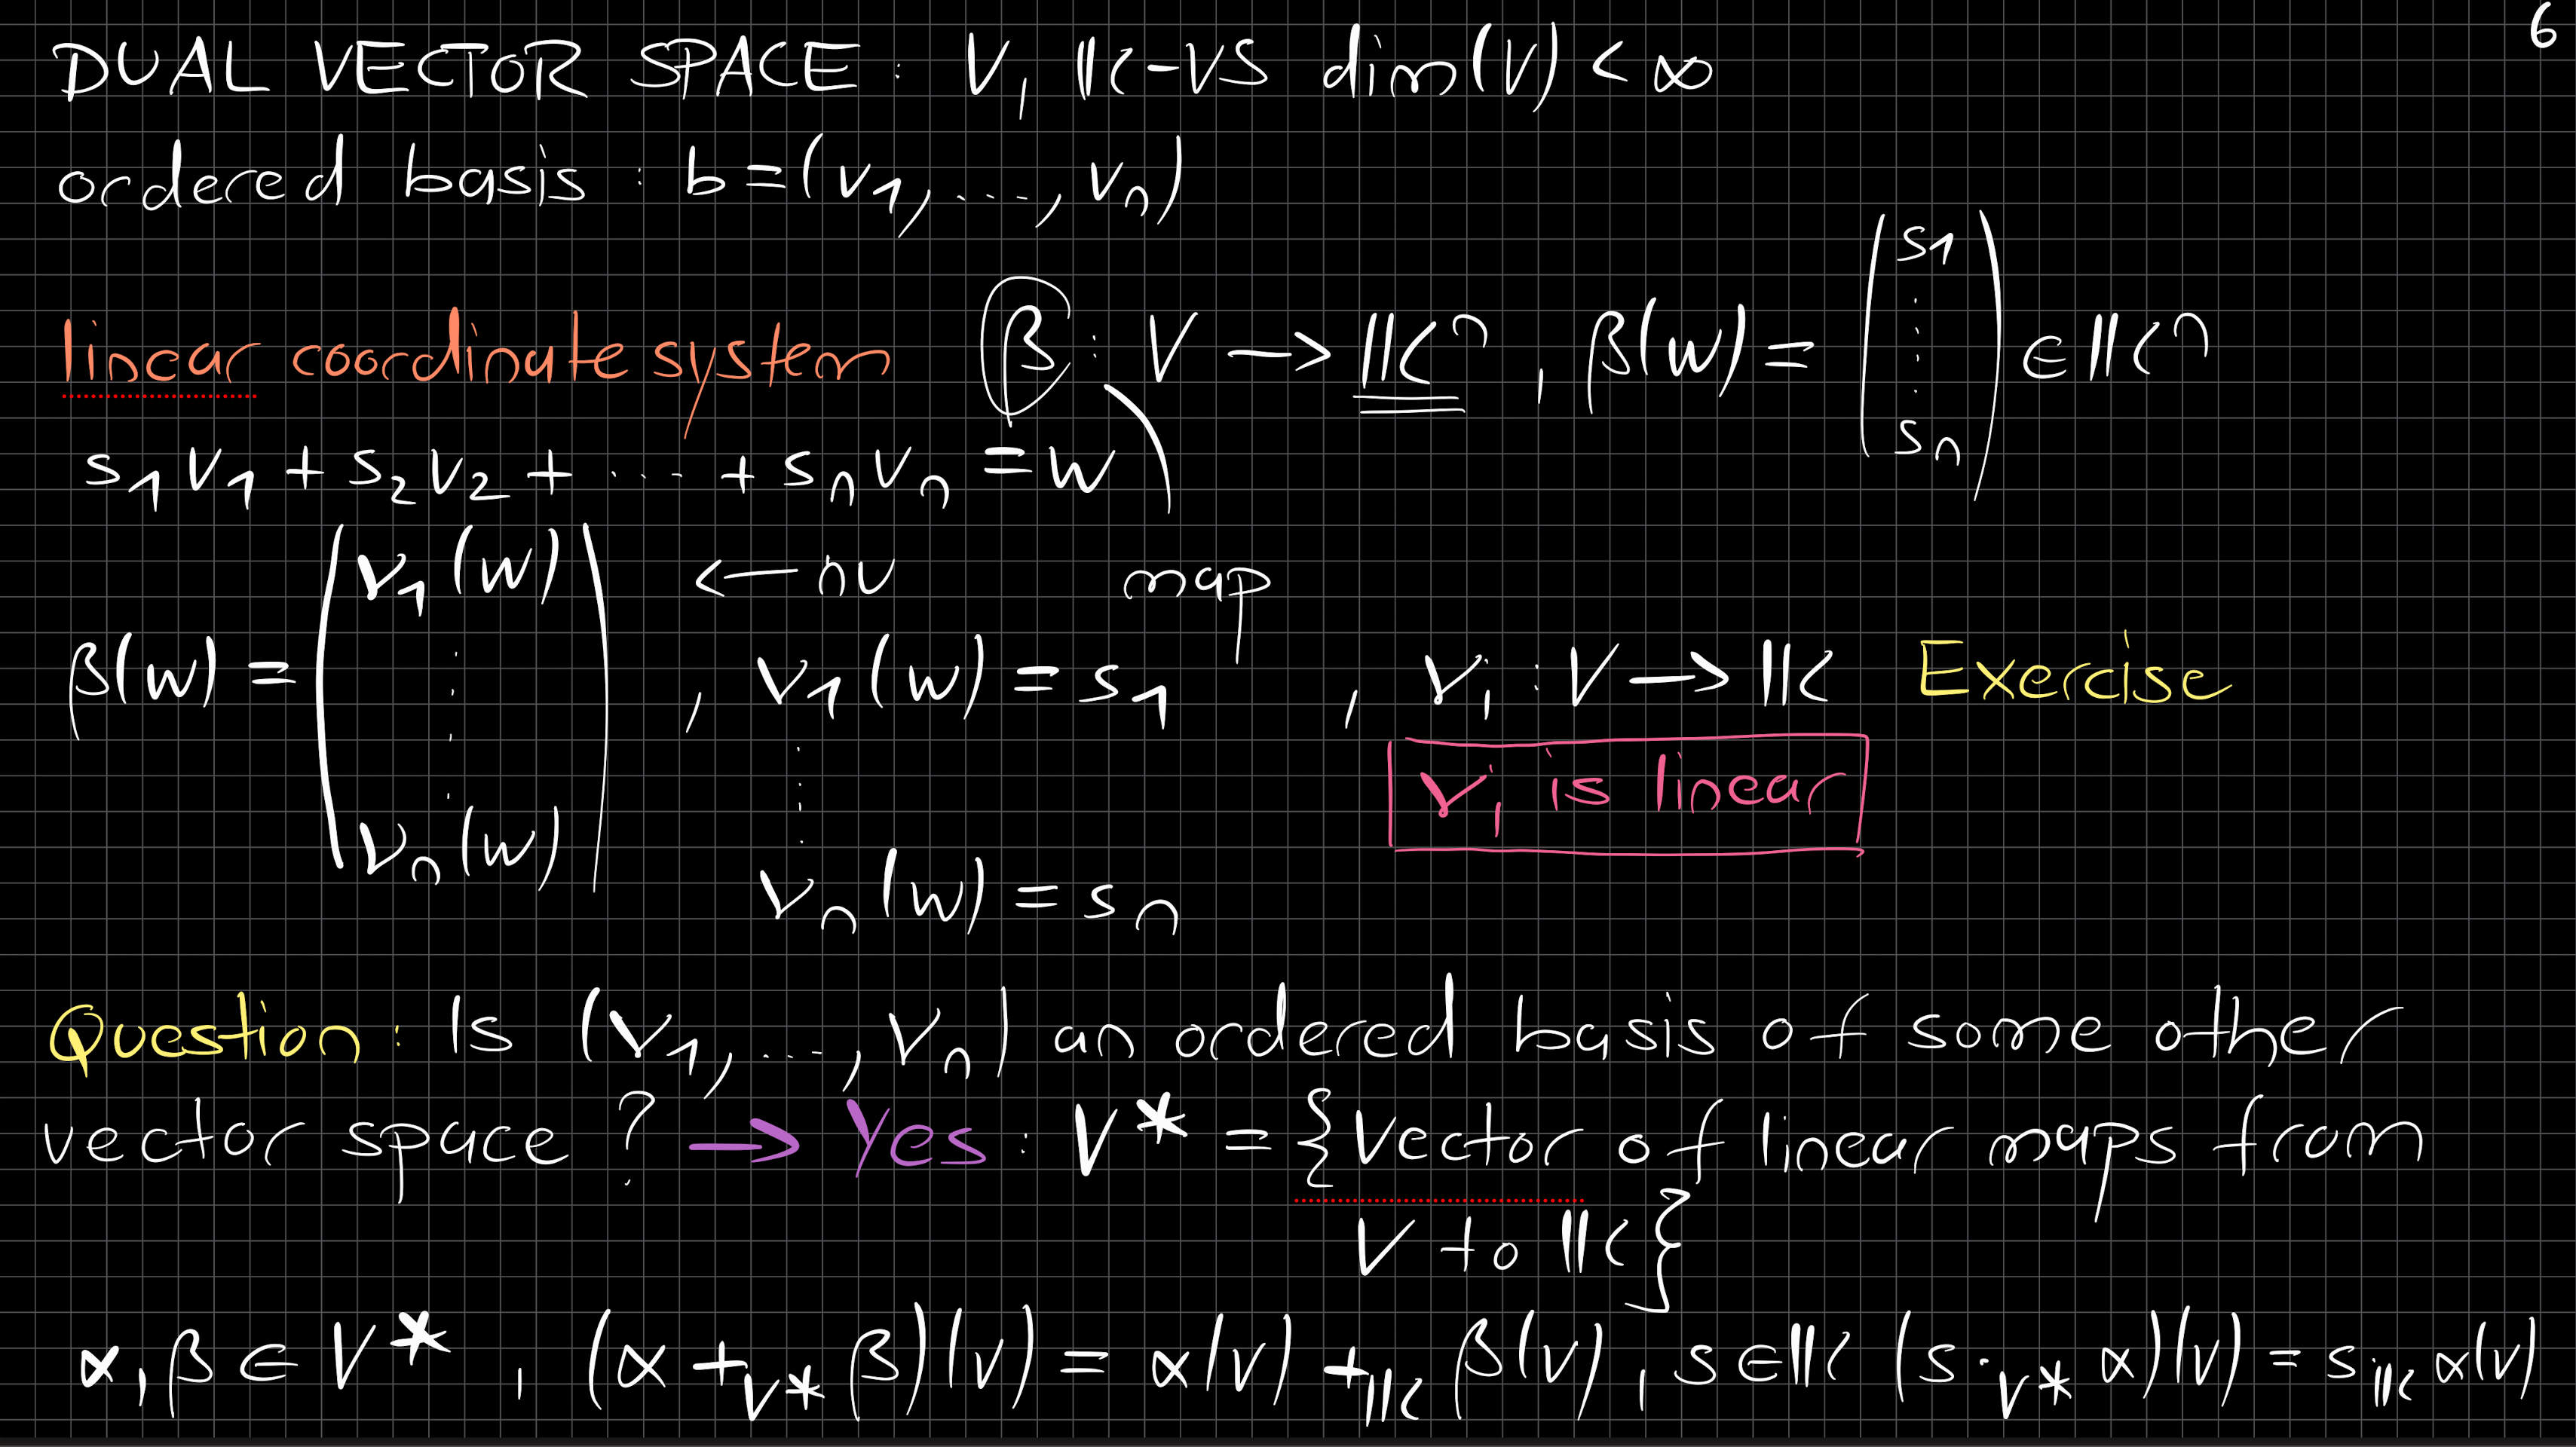 6
DUAL VECTOR SPACE: V, 𝕂-VS dim(V) < ∞
ordered basis: b=(v₁, ..., vₙ)
linear coordinate system β: V → 𝕂ⁿ, β(w) = (s₁ ⋮ sₙ) ∈ 𝕂ⁿ
s₁v₁ + s₂v₂ + ... + sₙvₙ = w
β(w) = (ν₁(w) ⋮ νₙ(w)) ← nu map
, ν₁(w) = s₁ , νᵢ: V → 𝕂 Exercise
⋮ νᵢ is linear
νₙ(w) = sₙ
Question: Is (ν₁, ..., νₙ) an ordered basis of some other
vector space? → Yes: V* = {Vector of linear maps from
V to 𝕂}
α, β ∈ V*, (α +_V* β)(v) = α(v) +_𝕂 β(v), s ∈ 𝕂 (s ·_V* α)(v) = s ·_𝕂 α(v)